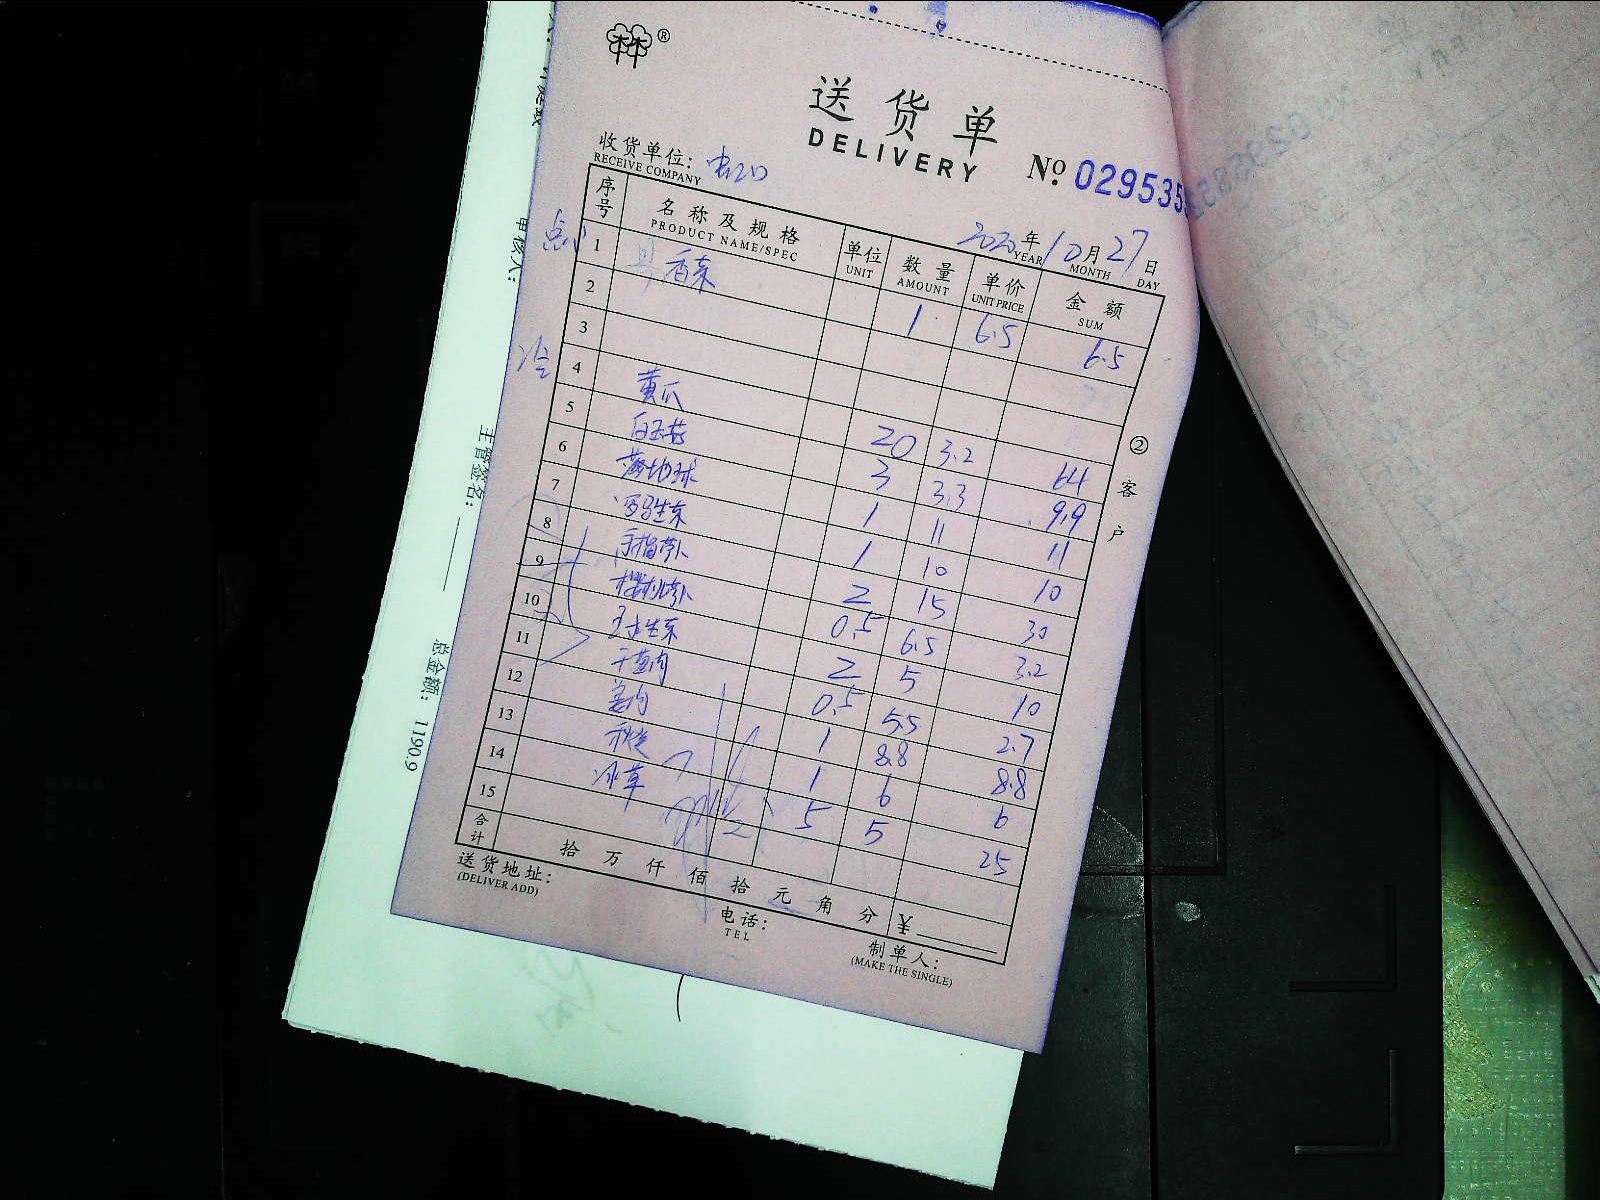 ®
送货单
DELIVERY
收货单位:
RECEIVE COMPANY
No 029535
2020年10月27日
YEAR MONTH DAY
序号 名称及规格 单位 数量 单价 金额
PRODUCT NAME/SPEC UNIT AMOUNT UNIT PRICE SUM
点
1 香菜 1 6.5 6.5
2
3
冷
4 黄瓜 20 3.2 64
5 白玉菇 3 3.3 9.9
6 1 11 11
7 罗马生菜 1 10 10
8 手指萝卜 2 15 30
9 樱桃萝卜 0.5 6.5 3.2
10 生菜 2 5 10
11 0.5 5.5 2.7
12 姜肉 1 8.8 8.8
13 秋葵 1 6 6
14 冰草 5 5 25
15
合计 拾 万 仟 佰 拾 元 角 分 ¥
送货地址:
(DELIVER ADD)
电话:
TEL
制单人:
(MAKE THE SINGLE)
② 客户
审核人:
主管签名:
总金额: 1190.9